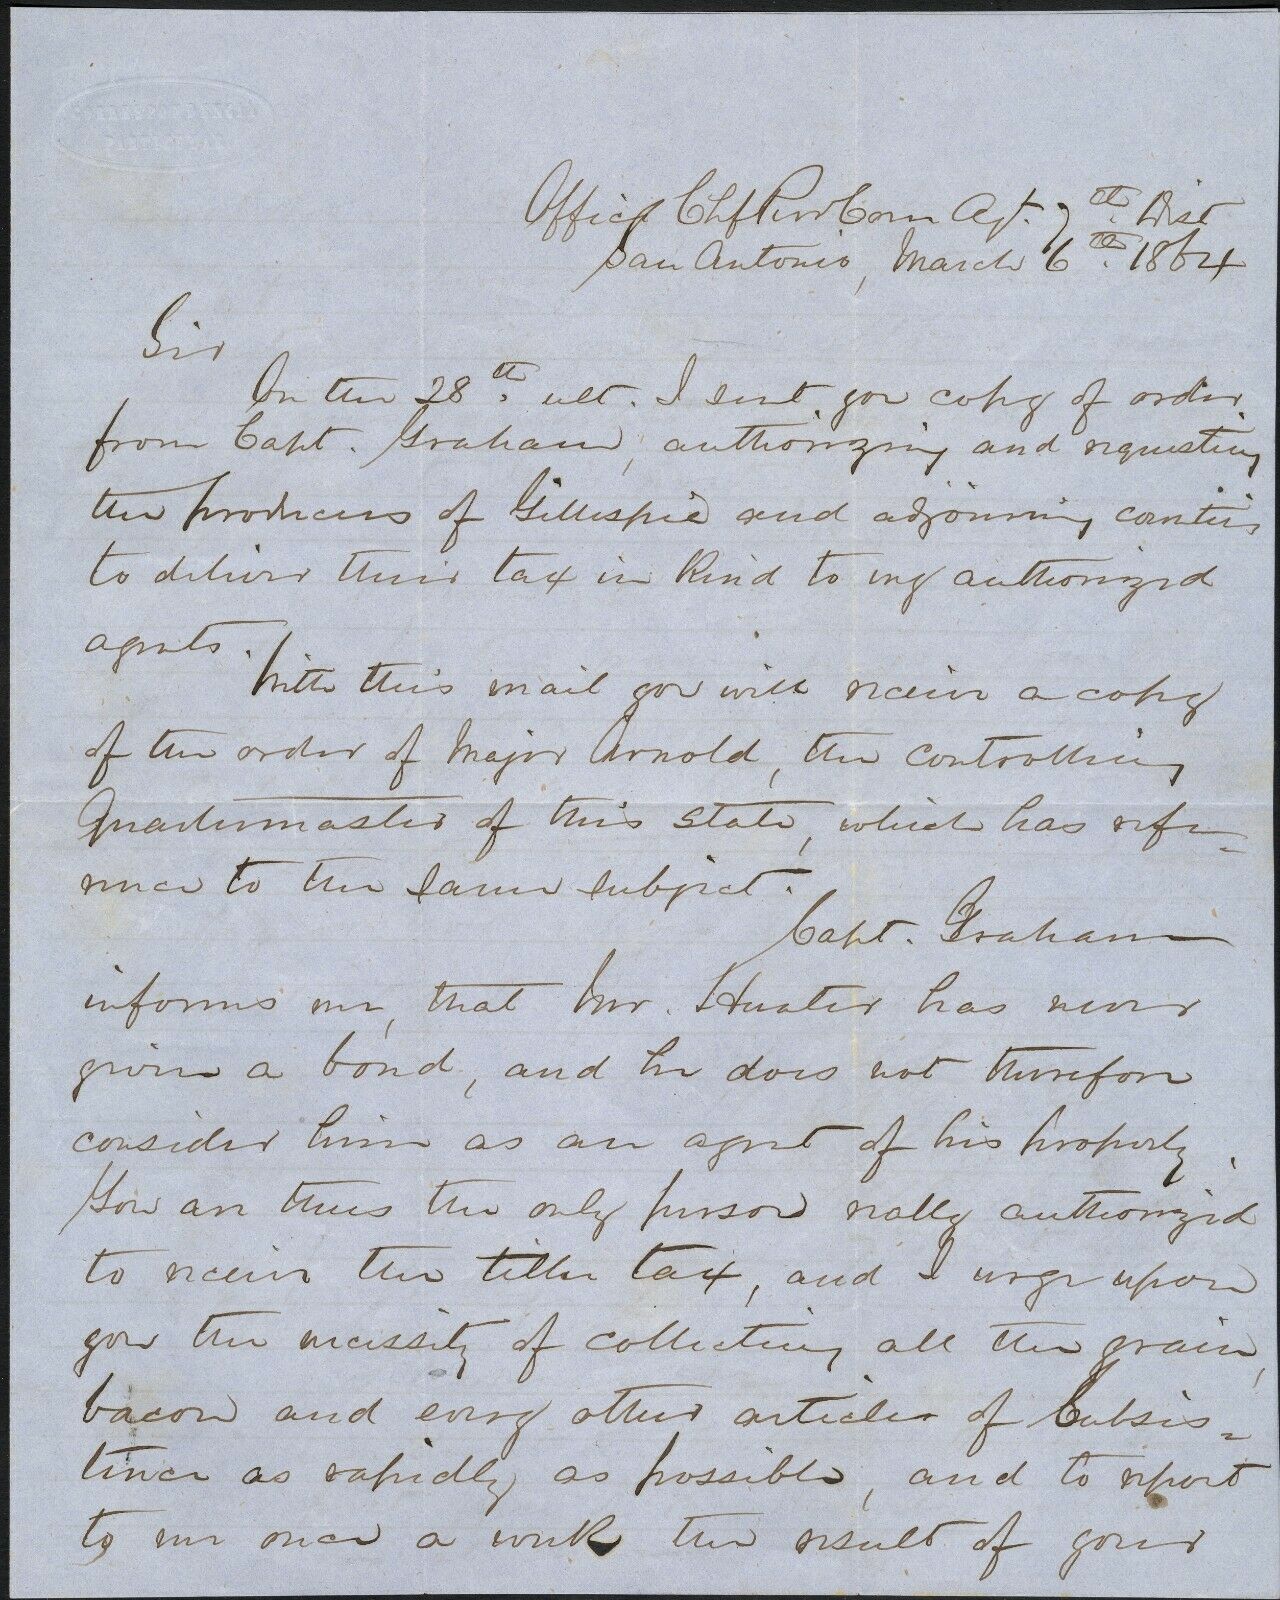 Office Chf Purr Com Agt. 7th. Dist
San Antonio, March 6th. 1864
Sir
On the 28th. ult. I sent you copy of order
from Capt. Graham, authorizing and requesting
the producers of Gillespie and adjoining counties
to deliver their tax in kind to my authorized
agents.
With this mail you will receive a copy
of the order of Major Arnold, the controlling
Quartermaster of this State, which has refe-
rence to the same subject.
Capt. Graham
informs me, that Mr. Hunter has never
given a bond, and he does not therefore
consider him as an agent of his property.
You are thus the only person really authorized
to receive the tithe tax, and I urge upon
you the necessity of collecting all the grain,
bacon and every other article of Subsis-
tence as rapidly as possible, and to report
to me once a week the result of your